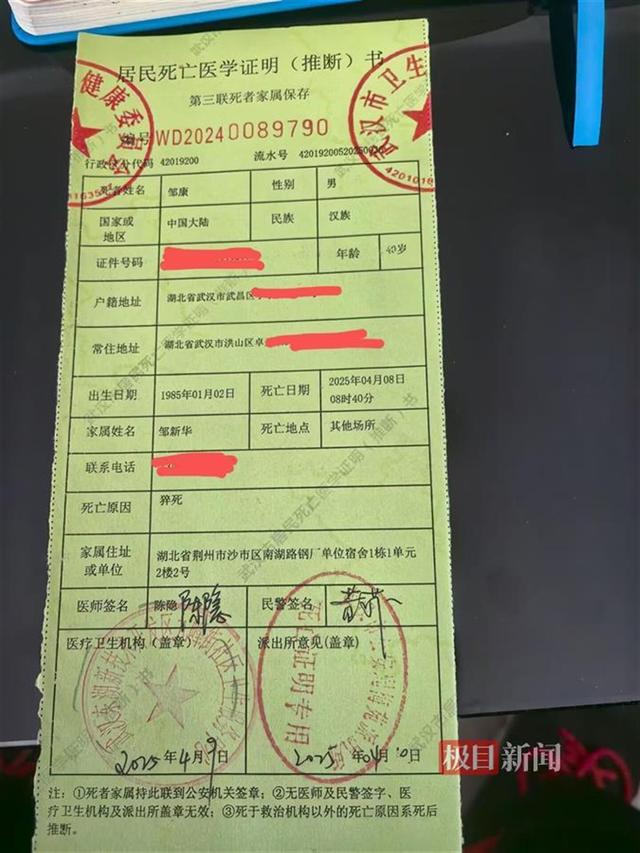 居民死亡医学证明（推断）书
第三联死者家属保存
编号WD20240089790
行政区分代码 42019200 流水号
死者姓名 邹康 性别 男
国家或地区 中国大陆 民族 汉族
证件号码 年龄 40岁
户籍地址 湖北省武汉市武昌区
常住地址 湖北省武汉市洪山区卓
出生日期 1985年01月02日 死亡日期 2025年04月08日
08时40分
家属姓名 邹新华 死亡地点 其他场所
联系电话
死亡原因 猝死
家属住址或单位 湖北省荆州市沙市区南湖路钢厂单位宿舍1栋1单元
2楼2号
医师签名 陈隐 陈隐 民警签名
医疗卫生机构（盖章） 派出所意见(盖章)
死亡证明专用
2025年4月9日 2025年04月10日
极目新闻
注：①死者家属持此联到公安机关签章；②无医师及民警签字、医
疗卫生机构及派出所盖章无效；③死于救治机构以外的死亡原因系死后
推断。
健康委员会
武汉市卫生